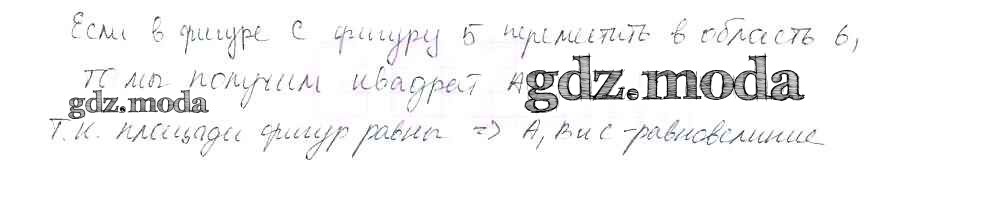 Если в фигуре С фигуру 5 переместить в область 6,
то мы получим квадрат А
gdz.moda
gdz.moda
Т.к. площади фигур равны => А, В и С - равновеликие